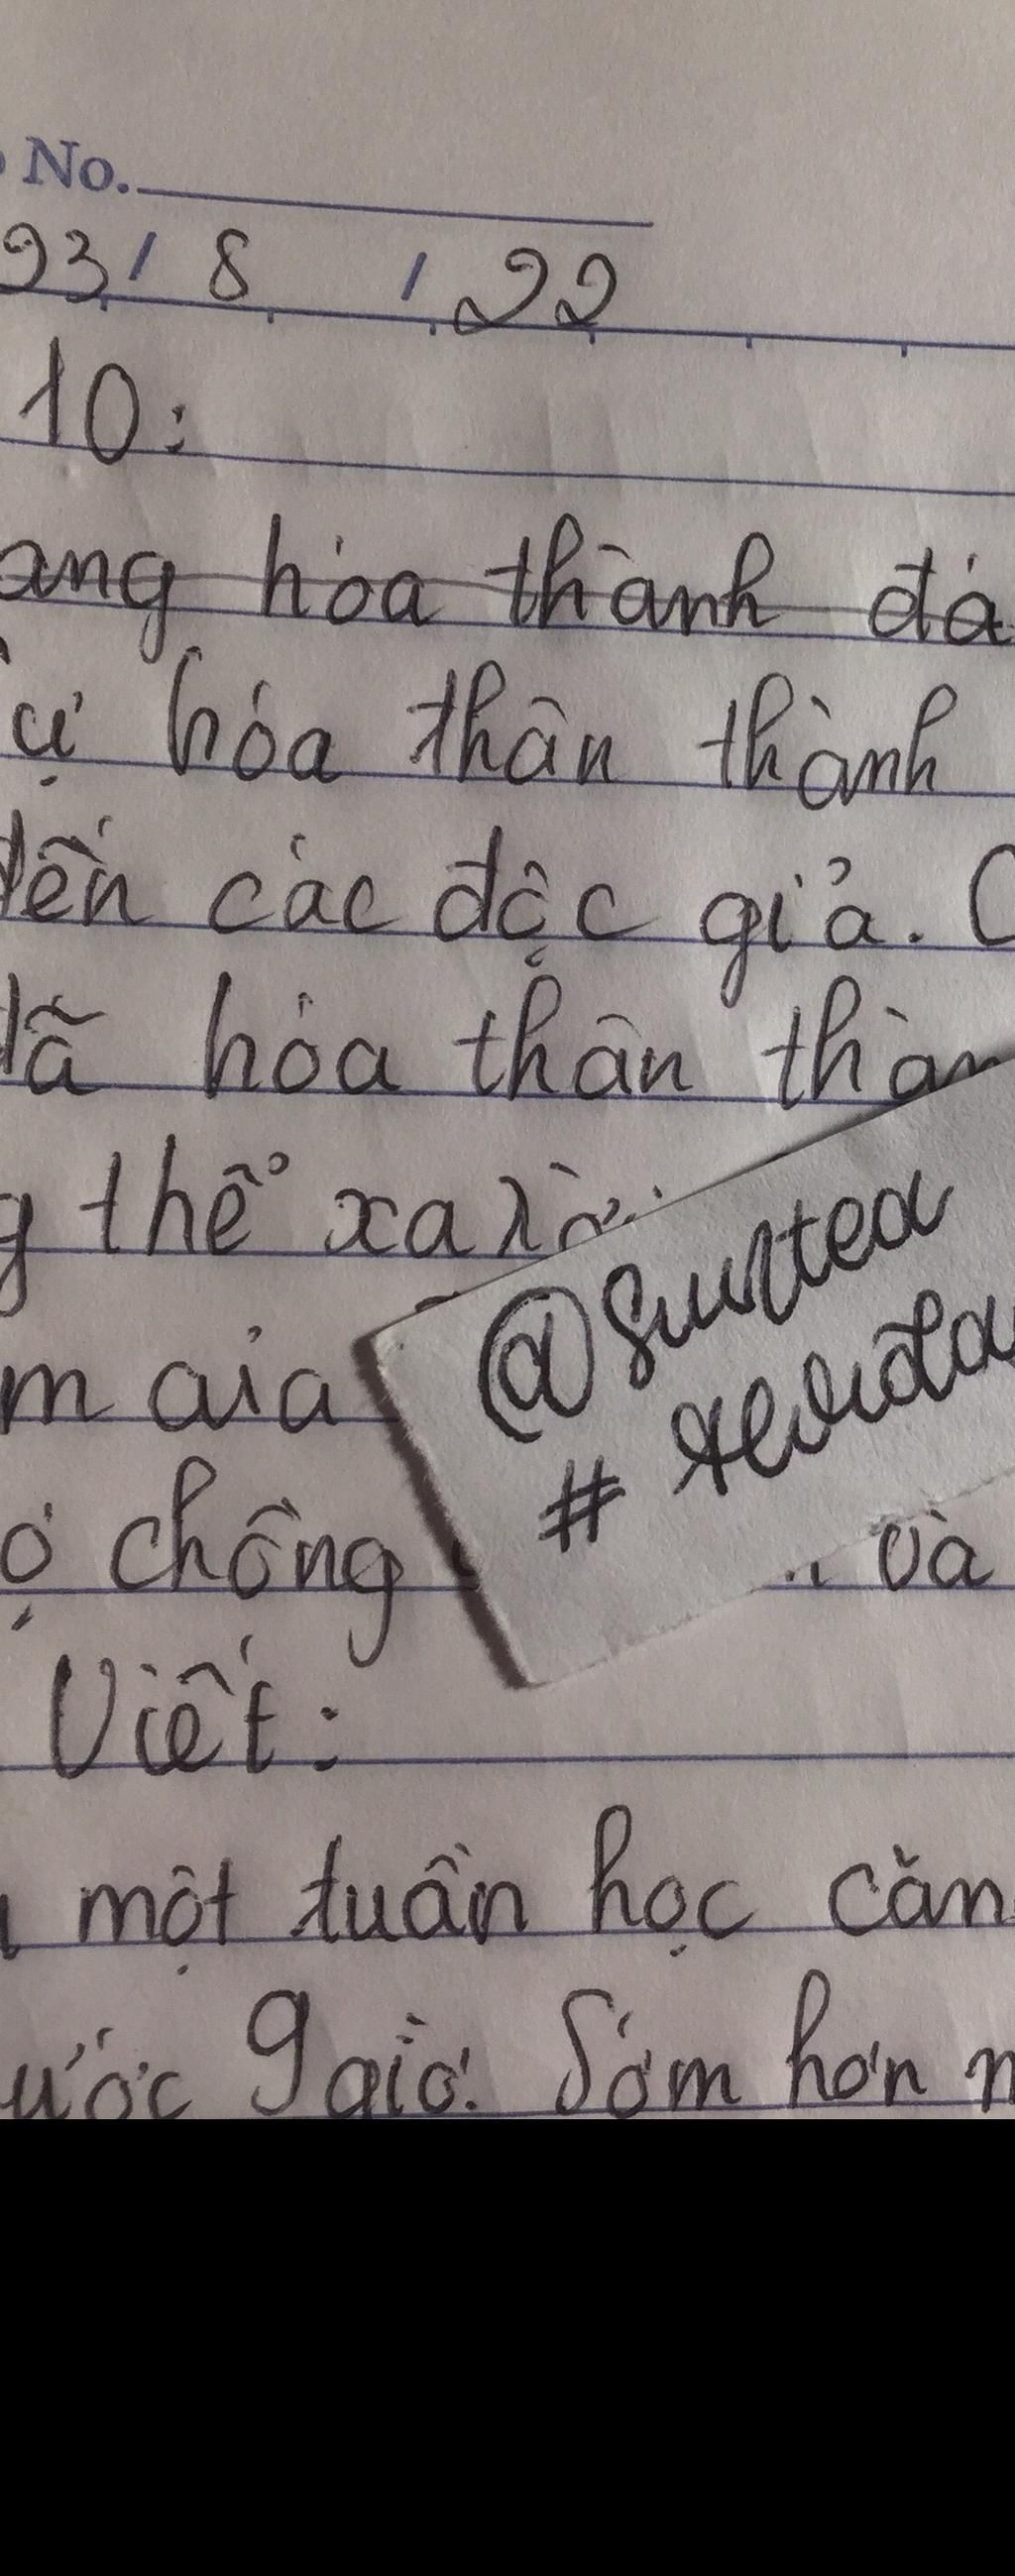 No.
23/ 8 / 22
10:
ang hóa thành đá
ự hóa thân thành
đến các độc giả.
đã hóa thân
thể xa
m gia
ợ chồng và
Viết:
một tuần học căn
ước 9 giờ. Sớm hơn
@Suntea
#